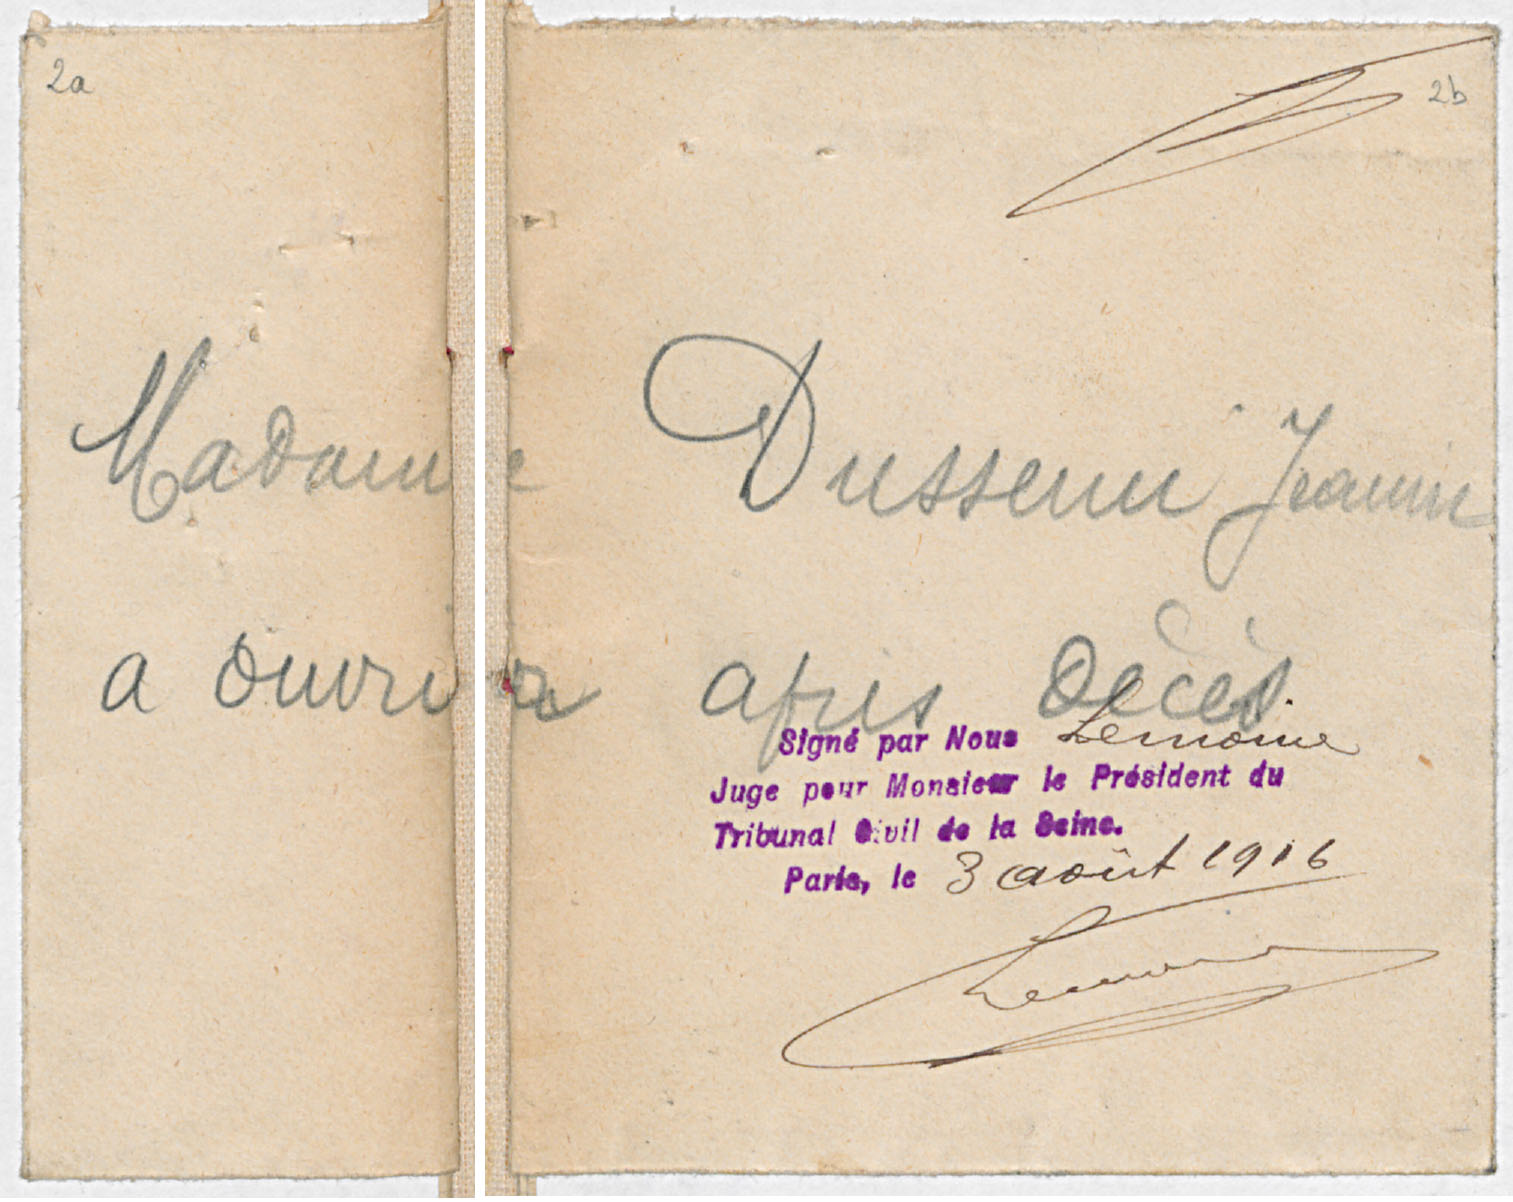 2a
2b
Madame Dussenni Jeanne
a ouvrir après Décès
Signé par Nous Lemoine
Juge pour Monsieur le Président du
Tribunal Civil de la Seine.
Paris, le 3 août 1916
Lemoine